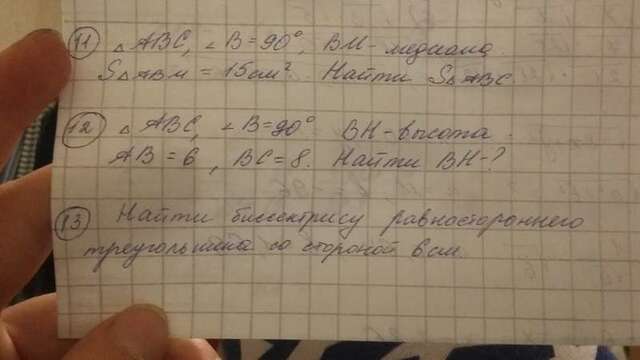 11 △ABC, ∠B=90°, BM-медиана.
S△ABM = 15см². Найти S△ABC.
12 △ABC, ∠B=90° BH-высота.
AB=6, BC=8. Найти BH-?
13 Найти биссектрису равностороннего
треугольника со стороной 6см.